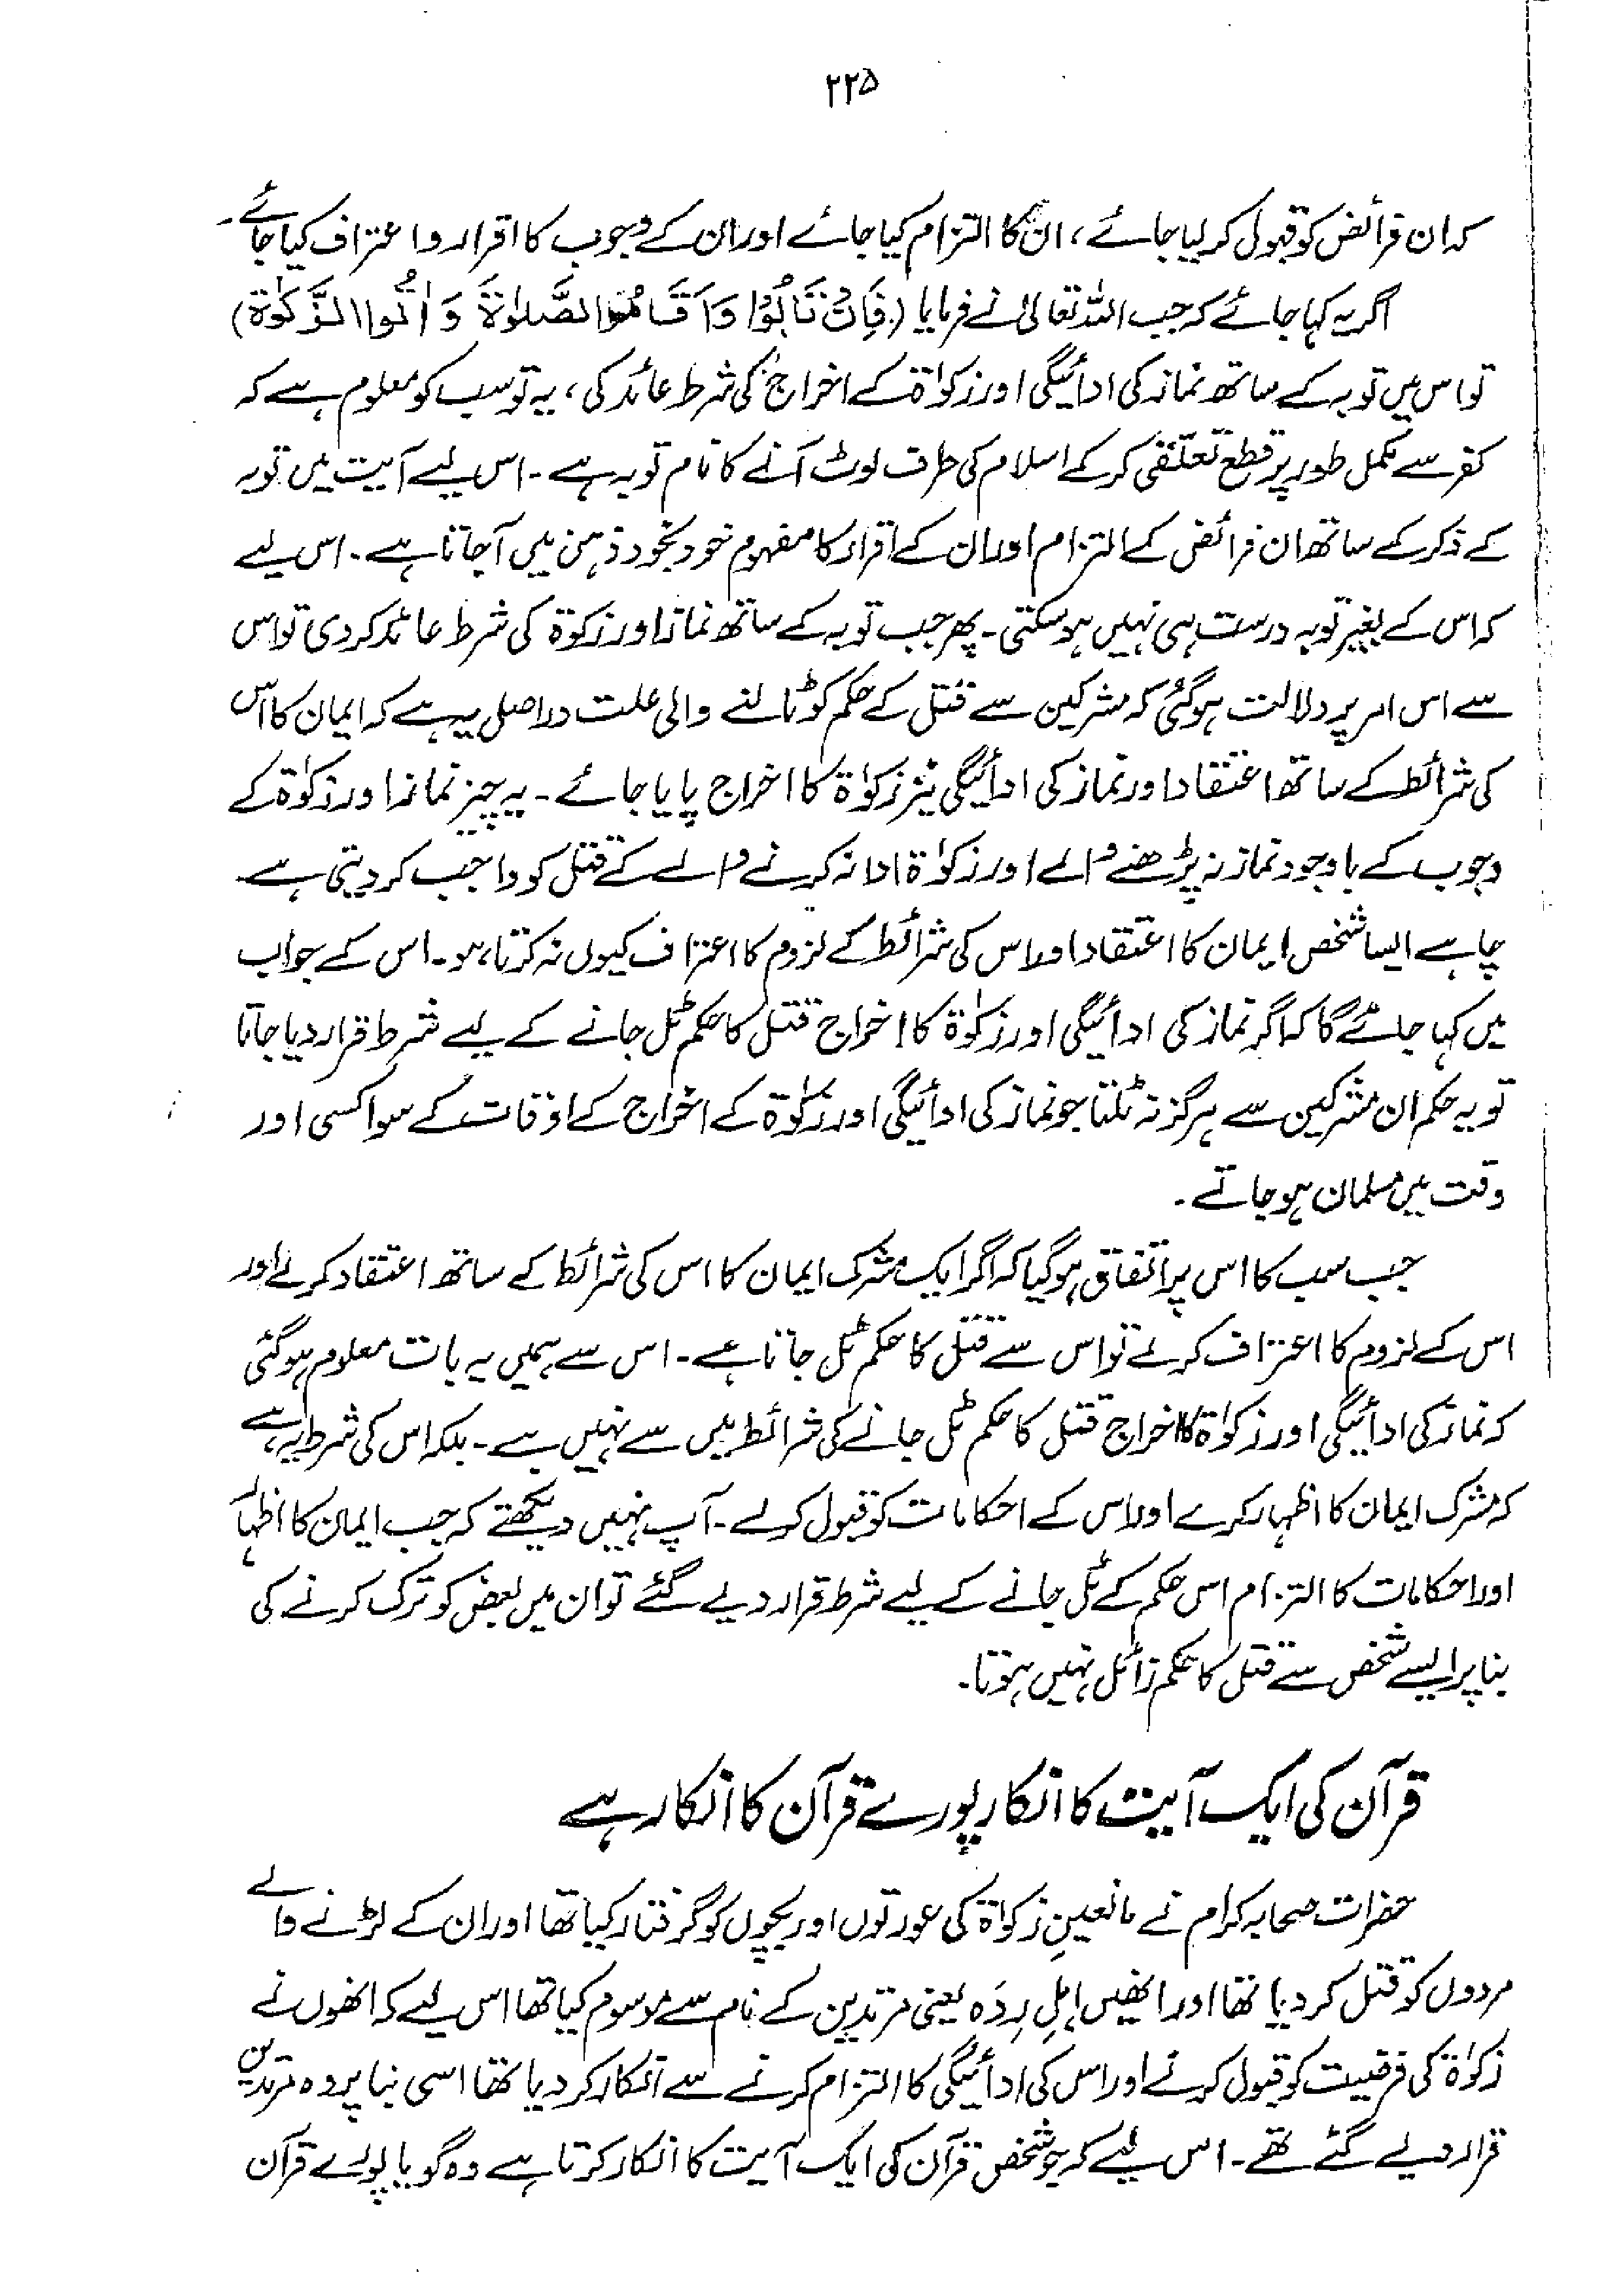 ۲۲۵
کہ ان فرائض کو قبول کر لیا جائے، ان کا التزام کیا جائے اور ان کے وجوب کا اقرار و اعتراف کیا جائے۔
اگر یہ کہا جائے کہ جب اللہ تعالیٰ نے فرمایا (فَاِنْ تَابُوْا وَاَقَامُوا الصَّلٰوۃَ وَ اٰتَوُا الزَّکٰوۃَ)
تو اس میں توبہ کے ساتھ نماز کی ادائیگی اور زکوٰۃ کے اخراج کی شرط عائد کی، یہ تو سب کو معلوم ہے کہ
کفر سے مکمل طور پر قطع تعلقی کر کے اسلام کی طرف لوٹ آنے کا نام توبہ ہے۔ اس لیے آیت میں توبہ
کے ذکر کے ساتھ ان فرائض کے التزام اور ان کے اقرار کا مفہوم خود بخود ذہن میں آ جاتا ہے۔ اس لیے
کہ اس کے بغیر توبہ درست ہی نہیں ہو سکتی۔ پھر جب توبہ کے ساتھ نماز اور زکوٰۃ کی شرط عائد کر دی تو اس
سے اس امر پر دلالت ہو گئی کہ مشرکین سے قتل کے حکم کو ٹالنے والی علت دراصل یہ ہے کہ ایمان کا اس
کی شرائط کے ساتھ اعتقاد اور نماز کی ادائیگی نیز زکوٰۃ کا اخراج پایا جائے۔ یہ چیز نماز اور زکوٰۃ کے
وجوب کے باوجود نماز نہ پڑھنے والے اور زکوٰۃ ادا نہ کرنے والے کے قتل کو واجب کر دیتی ہے۔
چاہے ایسا شخص ایمان کا اعتقاد اور اس کی شرائط کے لزوم کا اعتراف کیوں نہ کرتا ہو۔ اس کے جواب
میں کہا جائے گا کہ اگر نماز کی ادائیگی اور زکوٰۃ کا اخراج قتل کا حکم ٹل جانے کے لیے شرط قرار دیا جاتا
تو یہ حکم ان مشرکین سے ہرگز نہ ٹلتا جو نماز کی ادائیگی اور زکوٰۃ کے اخراج کے اوقات کے سوا کسی اور
وقت میں مسلمان ہو جاتے۔
جب سب کا اس پر اتفاق ہو گیا کہ اگر ایک مشرک ایمان کا اس کی شرائط کے ساتھ اعتقاد کر لے اور
اس کے لزوم کا اعتراف کر لے تو اس سے قتل کا حکم ٹل جاتا ہے۔ اس سے ہمیں یہ بات معلوم ہو گئی
کہ نماز کی ادائیگی اور زکوٰۃ کا اخراج قتل کا حکم ٹل جانے کی شرائط میں سے نہیں ہے۔ بلکہ اس کی شرط یہ ہے
کہ مشرک ایمان کا اظہار کرے اور اس کے احکامات کو قبول کر لے۔ آپ نہیں دیکھتے کہ جب ایمان کا اظہار
اور احکامات کا التزام اس حکم کے ٹل جانے کے لیے شرط قرار دیے گئے تو ان میں بعض کو ترک کرنے کی
بنا پر ایسے شخص سے قتل کا حکم زائل نہیں ہوتا۔
قرآن کی ایک آیت کا انکار پورے قرآن کا انکار ہے
حضرات صحابہ کرام نے مانعینِ زکوٰۃ کی عورتوں اور بچوں کو گرفتار کیا تھا اور ان کے لڑنے والے
مردوں کو قتل کر دیا تھا اور انھیں اہلِ رِدَہ یعنی مرتدین کے نام سے موسوم کیا تھا اس لیے کہ انھوں نے
زکوٰۃ کی فرضیت کو قبول کرنے اور اس کی ادائیگی کا التزام کرنے سے انکار کر دیا تھا اسی بنا پر وہ مرتدین
قرار دیے گئے تھے۔ اس لیے کہ جو شخص قرآن کی ایک آیت کا انکار کرتا ہے وہ گویا پورے قرآن